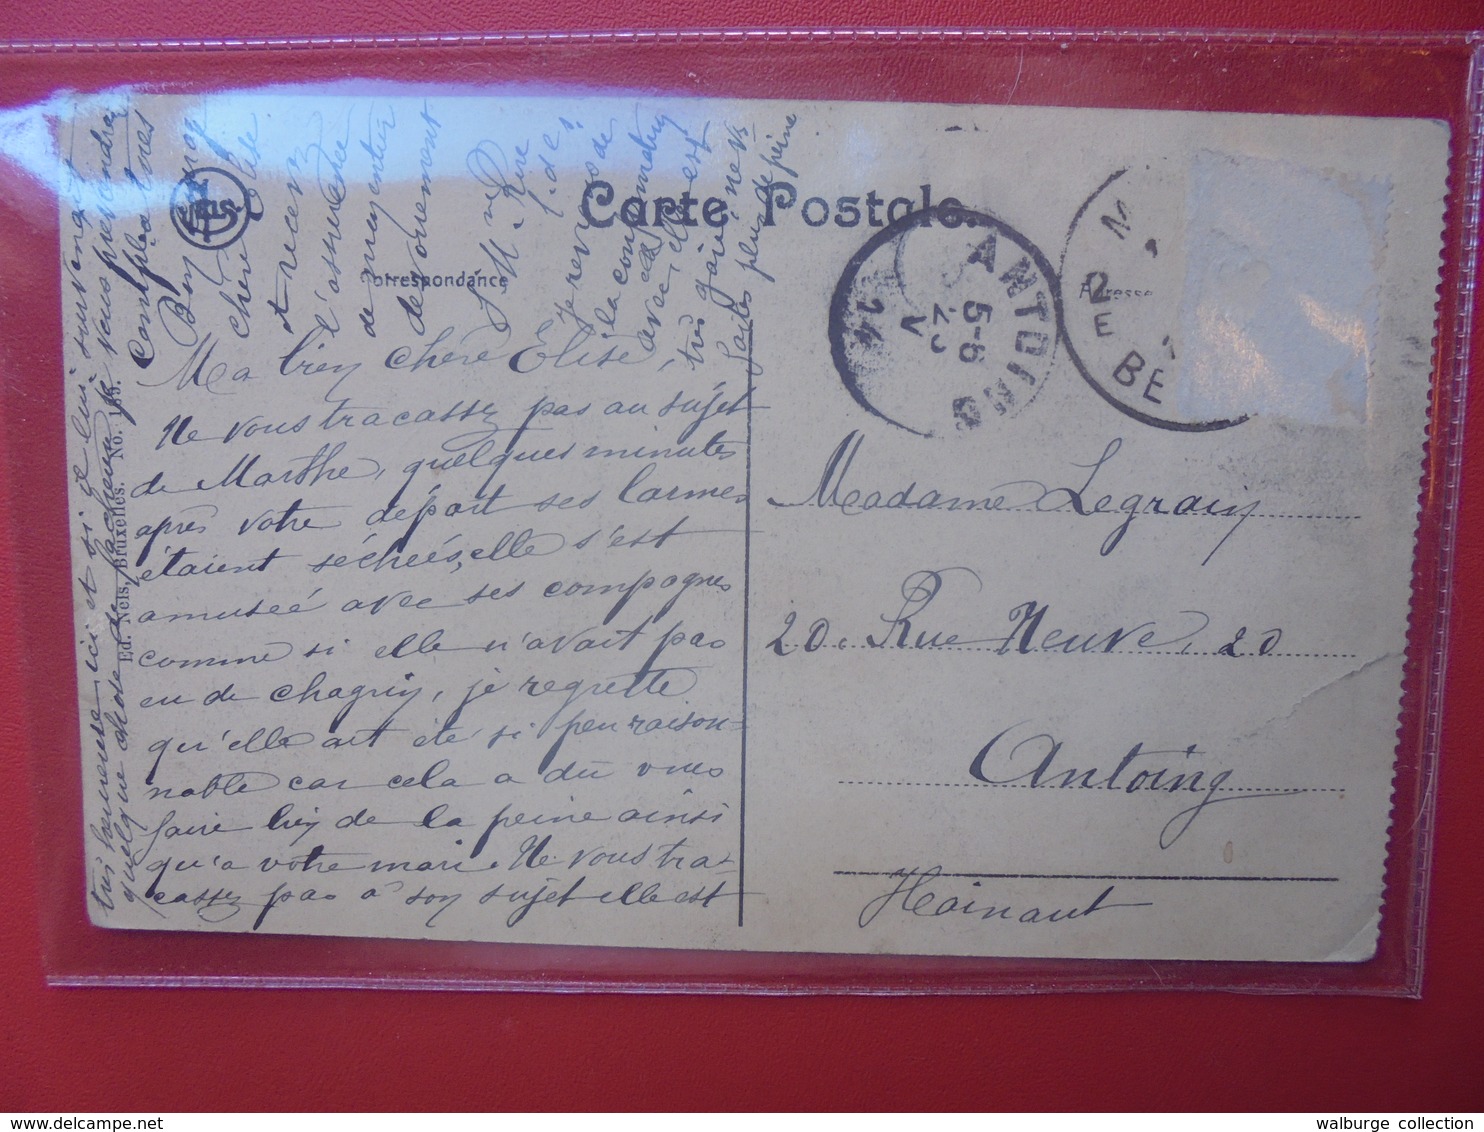 Carte Postale.
Correspondance
Adresse
Ed. Nels, Bruxelles. No. 188.
ANTOING
5-6
V
24
2
E
BE
Ma bien chère Elise,
Ne vous tracassez pas au sujet
de Marthe, quelques minutes
après votre départ ses larmes
étaient séchées, elle s'est
amuseé avec ses compagnes
comme si elle n'avait pas
eu de chagrin, je regrette
qu'elle ait été si peu raison=
nable car cela a dû vous
faire bien de la peine ainsi
qu'a votre mari. Ne vous tra-
cassez pas à son sujet elle est
très heureuse ici et si il lui survenait
quelque chose de facheux je vous préviendrai
Comptez
Bon
chère Elise
et recevez
l'assurance
de mon entier
dévouement
Je reviens de
la
avec elle est
très gaie, ne v.
faites plus de peine
Madame Legrain
20. Rue Neuve, 20
Antoing
Hainaut
walburge collection